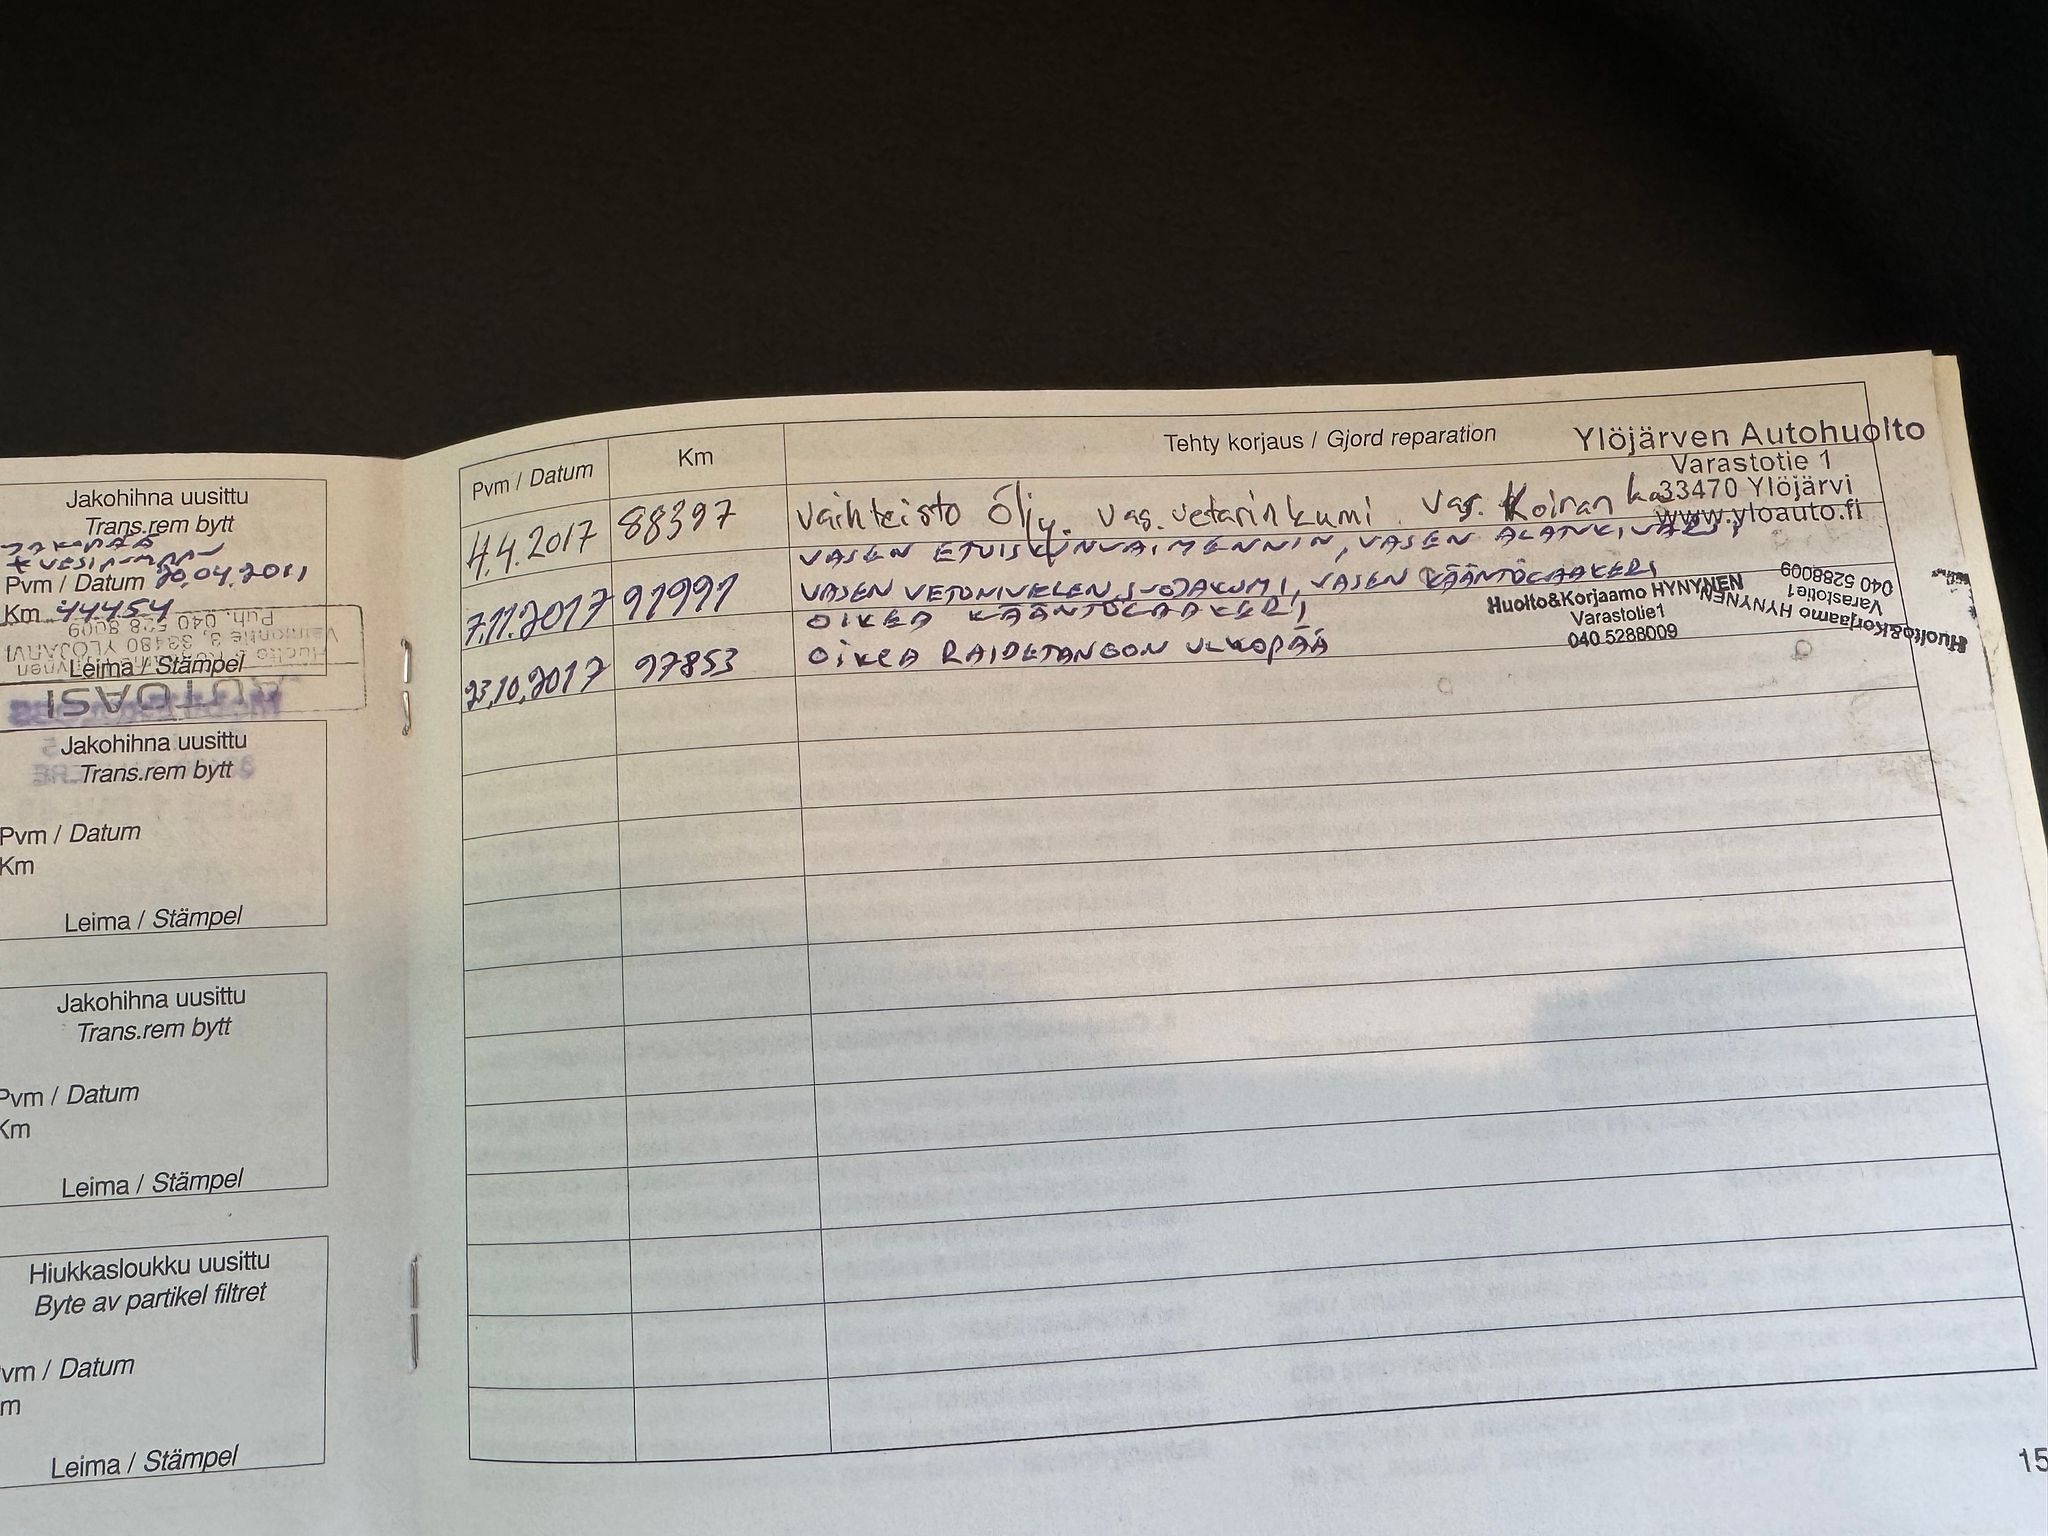 Jakohihna uusittu
Trans.rem bytt
Pvm / Datum 20.04.2011
Km 44454
Puh. 040 528 8009
33480 YLÖJÄRVI
Leima / Stämpel
Jakohihna uusittu
Trans.rem bytt
Pvm / Datum
Km
Leima / Stämpel
Jakohihna uusittu
Trans.rem bytt
Pvm / Datum
Km
Leima / Stämpel
Hiukkasloukku uusittu
Byte av partikel filtret
vm / Datum
m
Leima / Stämpel
Pvm / Datum Km Tehty korjaus / Gjord reparation
Ylöjärven Autohuolto
Varastotie 1
33470 Ylöjärvi
www.yloauto.fi
4.4.2017 88397 Vaihteisto Öljy. Vas. vetarinkumi. Vas. Koiran
VASEN ETUISKUNVAIMENNIN, VASEN
7.11.2017 91991 VASEN VETONIVELEN SUOJAKUMI, VASEN KÄÄNTÖLAAKERI
OIKEA KÄÄNTÖLAAKERI
Huolto&Korjaamo HYNYNEN
Varastotie1
040 5288009
Huolto&Korjaamo HYNYNEN
Varastotie1
040 5288009
23.10.2017 97853 OIKEA RAIDETANGON ULKOPÄÄ
15